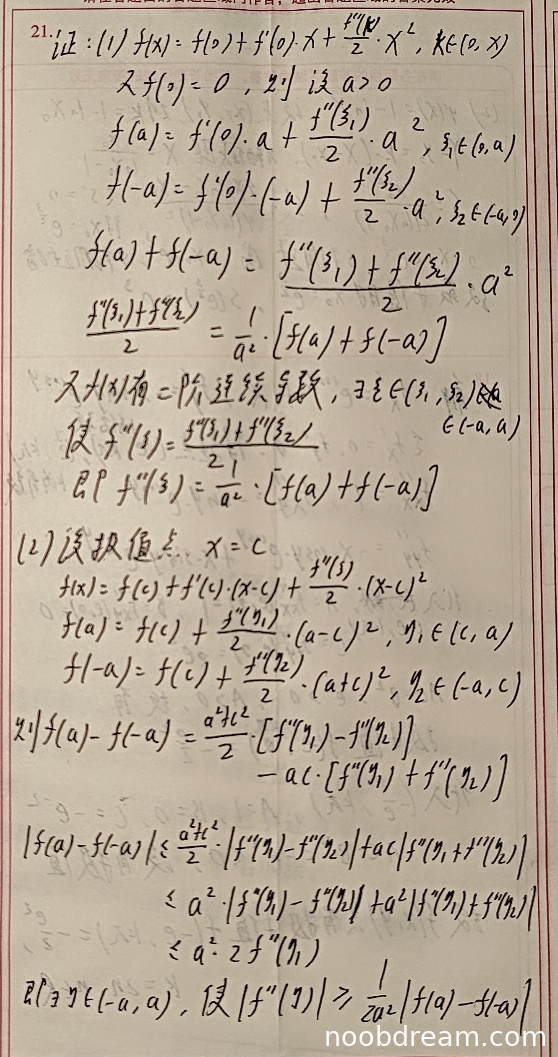 21. 证：(1) f(x) = f(0) + f'(0)·x + f''(k)/2 · x², k∈(0, x)
又 f(0) = 0, 则 设 a > 0
f(a) = f'(0)·a + f''(ξ₁)/2 · a², ξ₁∈(0, a)
f(-a) = f'(0)·(-a) + f''(ξ₂)/2 · a², ξ₂∈(-a, 0)
f(a) + f(-a) = (f''(ξ₁) + f''(ξ₂))/2 · a²
(f''(ξ₁) + f''(ξ₂))/2 = 1/a² · [f(a) + f(-a)]
又 f(x) 有二阶连续导数, ∃ξ∈(ξ₁, ξ₂)
∈(-a, a)
使 f''(ξ) = (f''(ξ₁) + f''(ξ₂))/2
即 f''(ξ) = 1/a² · [f(a) + f(-a)]
(2) 设极值点 x = c
f(x) = f(c) + f'(c)·(x-c) + f''(ξ)/2 · (x-c)²
f(a) = f(c) + f''(η₁)/2 · (a-c)², η₁∈(c, a)
f(-a) = f(c) + f''(η₂)/2 · (a+c)², η₂∈(-a, c)
则 f(a) - f(-a) = (a²+c²)/2 · [f''(η₁) - f''(η₂)]
- ac·[f''(η₁) + f''(η₂)]
|f(a) - f(-a)| ≤ (a²+c²)/2 · |f''(η₁) - f''(η₂)| + ac|f''(η₁ + f''(η₂)|
≤ a²·|f''(η₁) - f''(η₂)| + a²|f''(η₁) + f''(η₂)|
≤ a²·2f''(η₁)
即∃η∈(-a, a), 使|f''(η)| ≥ 1/2a² |f(a) - f(-a)|
noobdream.com